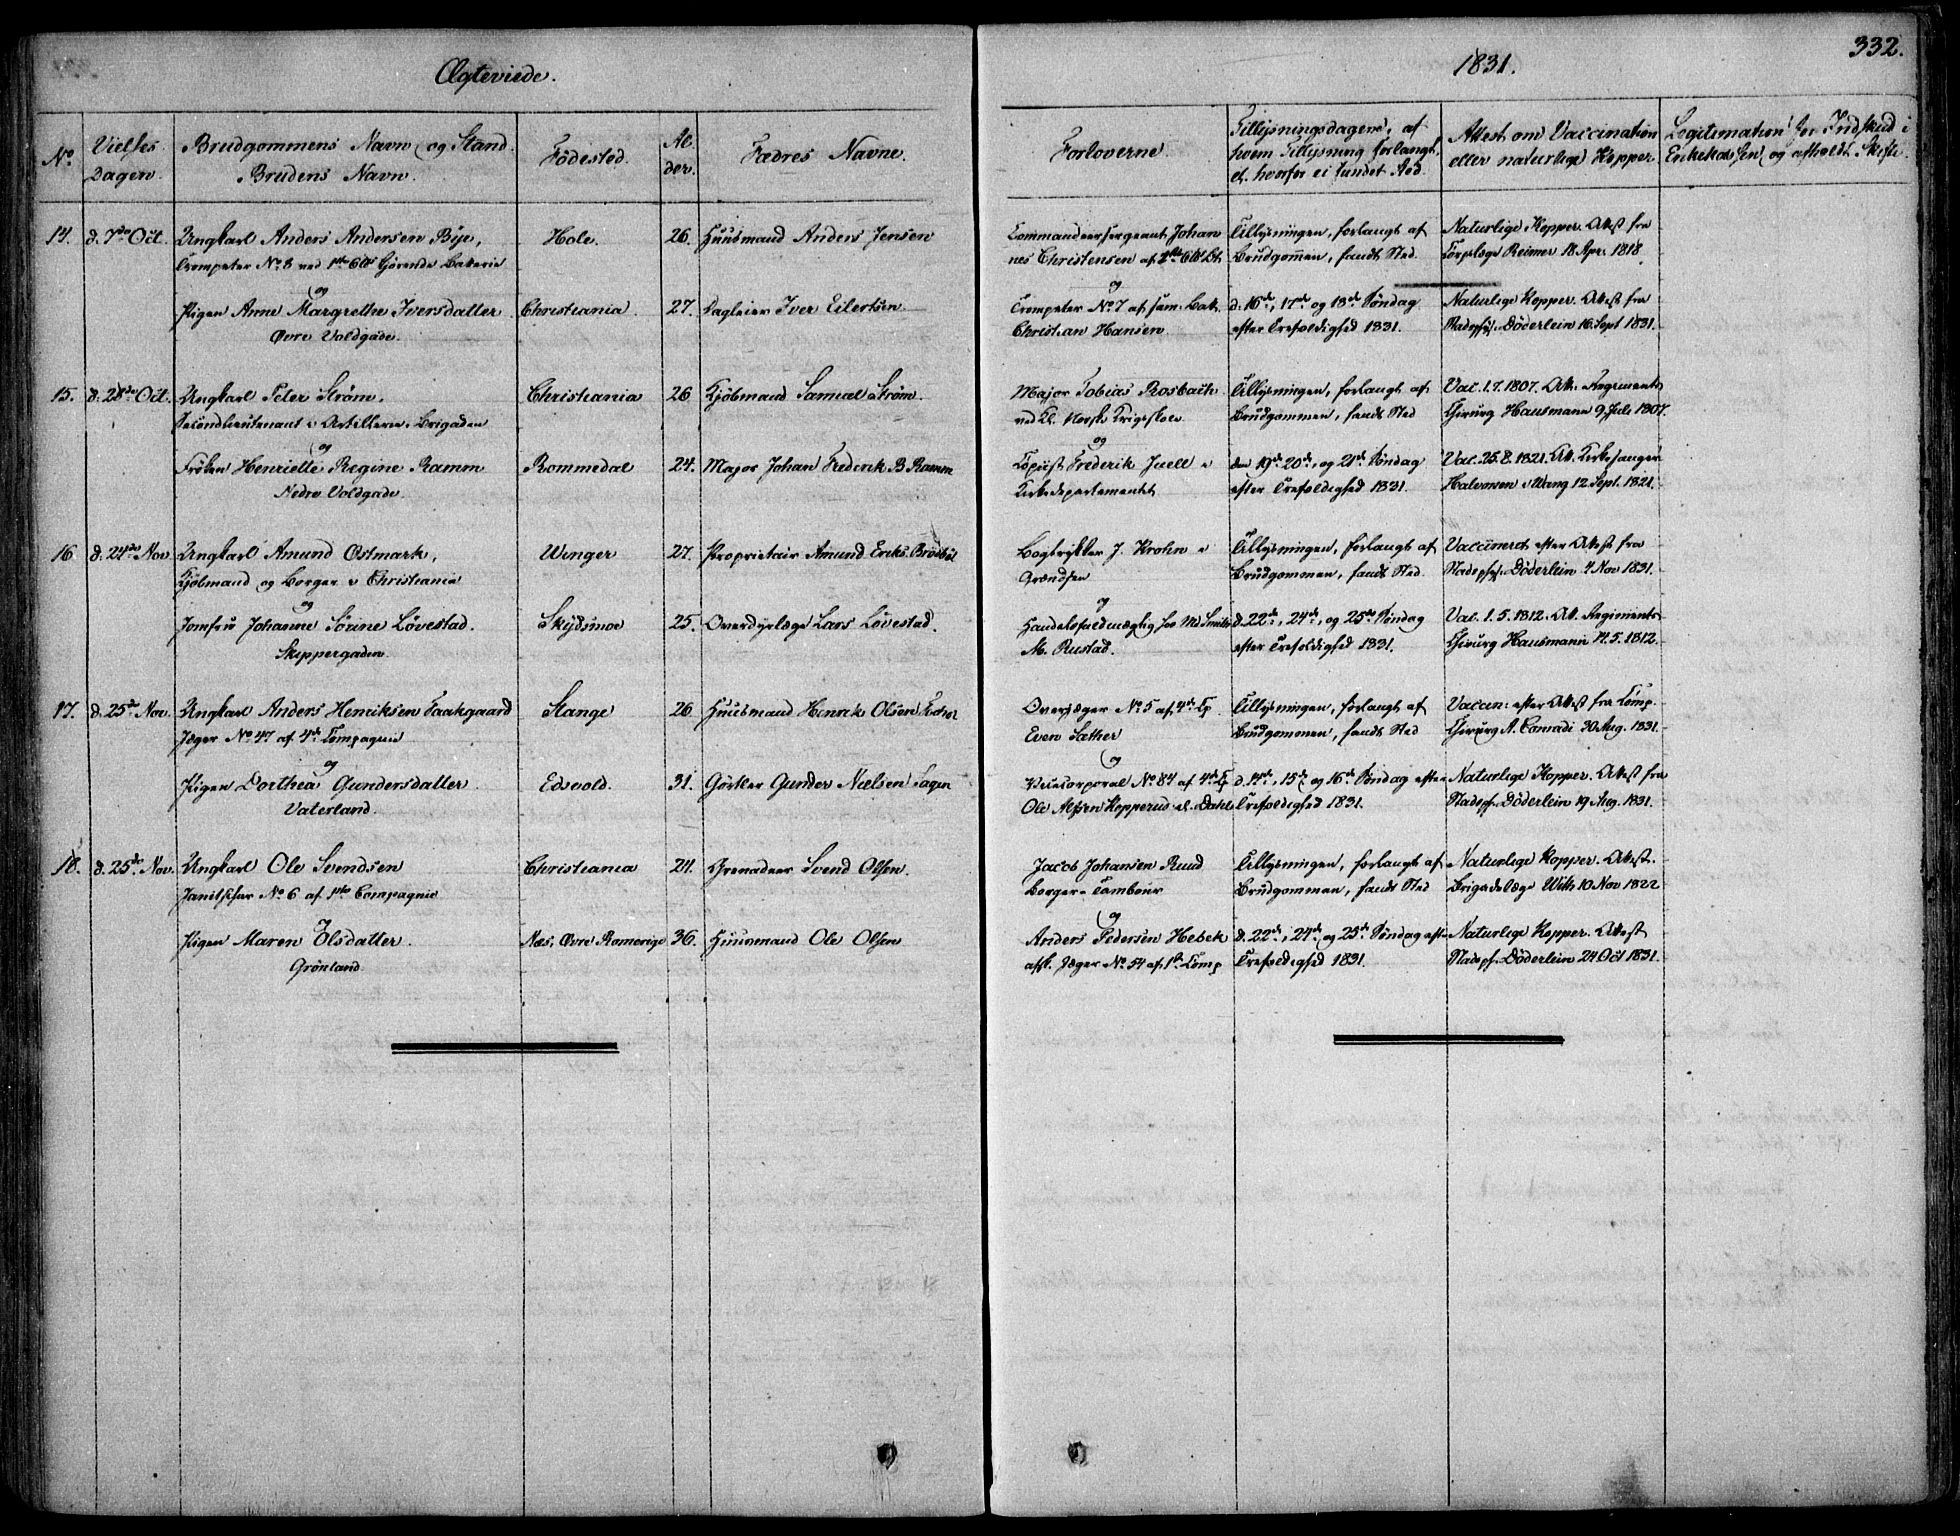 332.
Ægteviede.
1831.
No
Vielses
Dagen.
Brudgommens Navn og Stand.
Brudens Navn.
Födested.
Al-
der.
Fædres Navne.
Forloverne.
Tillysningsdagene, af
hvem Tillysning forlangt,
el. hvorfor ei fundet Sted.
Attest om Vaccination
eller naturlige Kopper.
Legitimation for Indskud i
Enkekassen, og afholdt Skifte.
14.
d. 7de Oct.
Ungkarl Anders Andersen Bye,
Trompeter No 8 ved 1ste Gjörende Batterie
og
Pigen Anne Margrethe Iversdatter
Övre Voldgade.
Hole.
Christiania.
26.
27.
Huusmand Anders Jensen
Dagleier Iver Eilertsen
Commandeersergeant Johan
nes Christensen af
og
Trompeter No 7 af sam. Batt.
Christian Hansen
Tillysningen, forlangt af
Brudgommen, fandt Sted.
d. 16de, 17de og 18de Söndag
efter Trefoldighed 1831.
Naturlige Kopper. Attest fra
Corpslæge Reimer 18 Apr. 1818.
Naturlige Kopper. Attest fra
Stadsphys. Döderlein 16. Sept 1831.
15.
d. 28de Oct.
Ungkarl Peter Ström.
Secondlieutenant i Artillerie-Brigaden
og
Fröken Henriette Regine Ramm
Nedre Voldgade.
Christiania
Rommedal
26
24.
Kjöbmand Samuel Ström.
Major Johan Frederik B. Ramm
Major Tobias Rosbach
ved Kl. Norske Krigsskole
og
Copiist Frederik Juell i
Kirkedepartementet
Tillysningen, forlangt af
Brudgommen, fandt Sted
den 19de 20de, og 21de Söndag
efter Trefoldighed 1831.
Vac. 1.7.1807. Att. Regiments
Chirurg Hausmann 9 Juli 1807.
Vac. 25.8.1821. Att. Kirkesanger
Halvorsen i Wang 12 Sept. 1821.
16
d. 24de Nov
Ungkarl Amund Östmark,
Kjöbmand og Borger i Christiania
og
Jomfru Johanne Sörine Lövestad.
Skippergaden.
Winger
Skydsmoe
27.
25.
Proprietair Amund Eriks.
Overdyrlæge Lars Lövestad.
Bogtrykker J. Krohn i
Grændsen
og
Handelsfuldmægtig for
M. Rustad.
Tillysningen, forlangt af
Brudgommen, fandt Sted
d. 22de, 24de, og 25de Söndag
efter Trefoldighed 1831.
Vaccineret efter Attest fra
Stadsphys. Döderlein 4 Nov 1831.
Vac. 1.5.1812. Att. Regiments
Chirurg Hausmann 14.5.1812.
17.
d. 25de Nov.
Ungkarl Anders Henriksen Taakgaard
Jæger No 47 af 4de Compagnie
og
Pigen Dorthea Gundersdatter
Vaterland.
Stange
Edsvold.
26
31.
Huusmand Henrik Olsen
Görtler Gunder Nielsen Fagen
Overjæger No 5 af 4de Cp.
Even Sæther
og
Vicecorporal No 84 af 4de Cp
Ole Alfsen Kopperud el. Dahle
Tillysningen, forlangt af
Brudgommen, fandt Sted
d. 14de, 15de og 16de Söndag efter
Trefoldighed 1831.
Vaccin: efter Attest fra Comp.
Chirurg A. Conradi 30 Aug. 1831.
Naturlige Kopper. Attest fra
Stadsph. Döderlein 19 Aug. 1831.
18.
d. 25de Nov.
Ungkarl Ole Svendsen
Janitschar No 6 af 1ste Compagnie
og
Pigen Maren Olsdatter.
Grönland.
Christiania
Næs, Övre Romerige
24.
36.
Grenadeer Svend Olsen.
Huusmand Ole Olsen
Jacob Johansen Ruud
Borger-Tambour
og
Anders Pedersen Hebek
afsk. Jæger No 54 af 1ste Comp
Tillysningen, forlangt af
Brudgommen, fandt Sted
d. 22de, 24de og 25de Söndag efter
Trefoldighed 1831.
Naturlige Kopper. Attest.
Brigadelæge With 10 Nov 1822
Naturlige Kopper. Attest
Stadsph. Döderlein 24 Oct 1831.